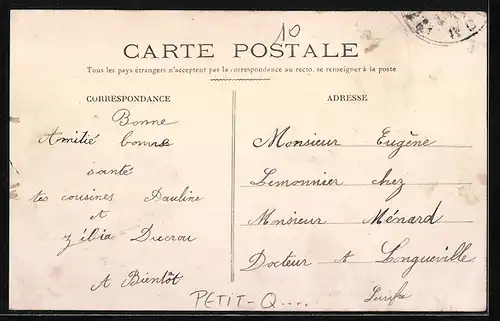 10
CARTE POSTALE
Tous les pays étrangers n'acceptent pas la correspondance au recto, se renseigner à la poste
CORRESPONDANCE
Bonne
Amitié bonne
santé
tes cousines Pauline
et
Zélia Ducrou
A Bientôt
ADRESSE
Monsieur Eugène
Lemonnier chez
Monsieur Ménard
Docteur à Longueville
PETIT-Q....